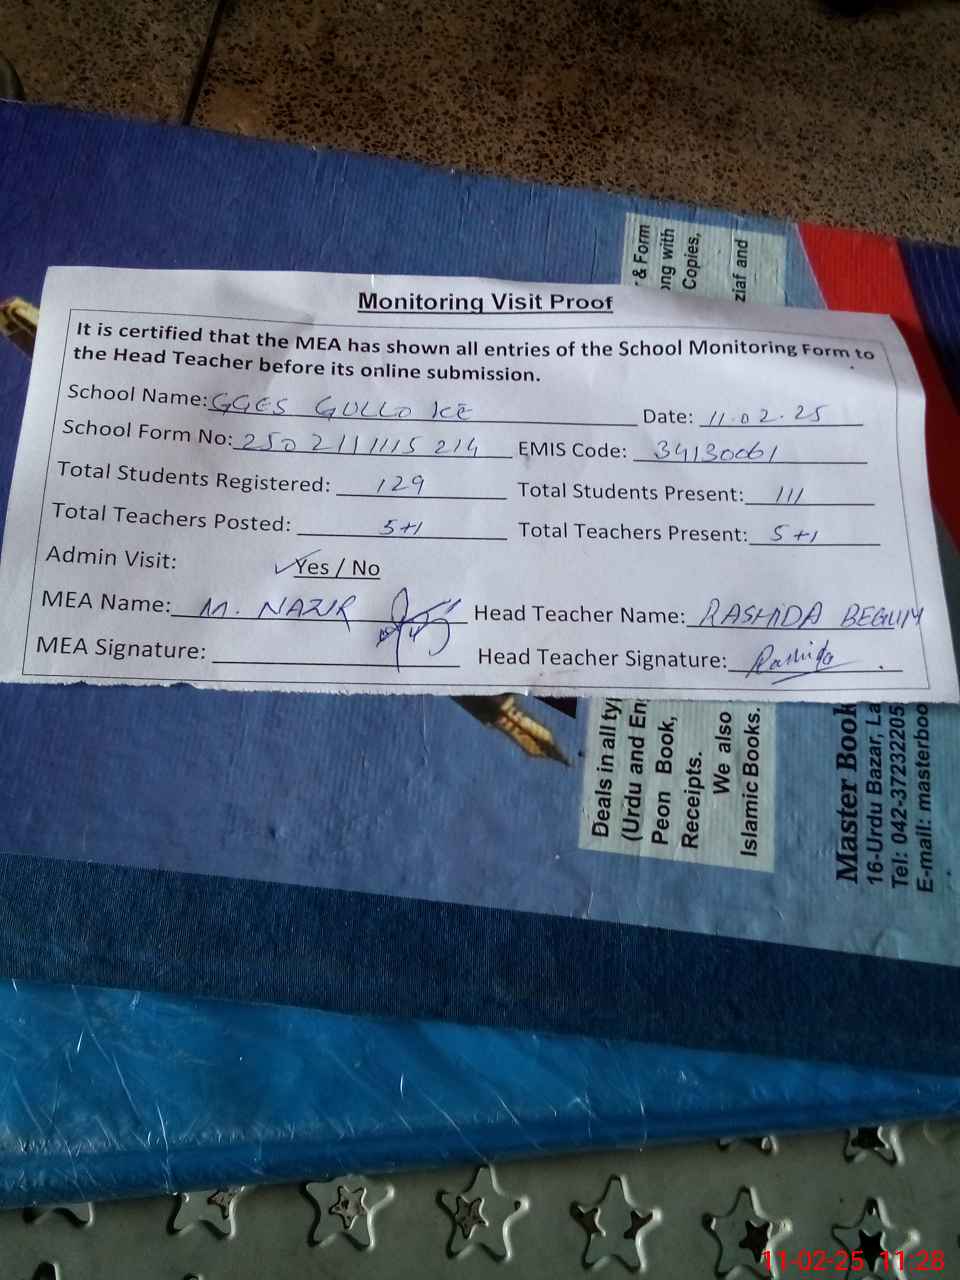 Monitoring Visit Proof
It is certified that the MEA has shown all entries of the School Monitoring Form to
the Head Teacher before its online submission.
School Name: GGES GULLO KE Date: 11.02.25
School Form No: 2502111115214 EMIS Code: 34130061
Total Students Registered: 129 Total Students Present: 111
Total Teachers Posted: 5+1 Total Teachers Present: 5+1
Admin Visit: ✓Yes / No
MEA Name: M. NAZIR Head Teacher Name: RASHIDA BEGUM
MEA Signature: Head Teacher Signature: Rashida
& Form
ong with
Copies,
ziaf and
Deals in all ty
(Urdu and En
Peon Book,
Receipts.
We also
Islamic Books.
Master Book
16-Urdu Bazar, La
Tel: 042-37232205
E-mail: masterboo
11-02-25 11:28